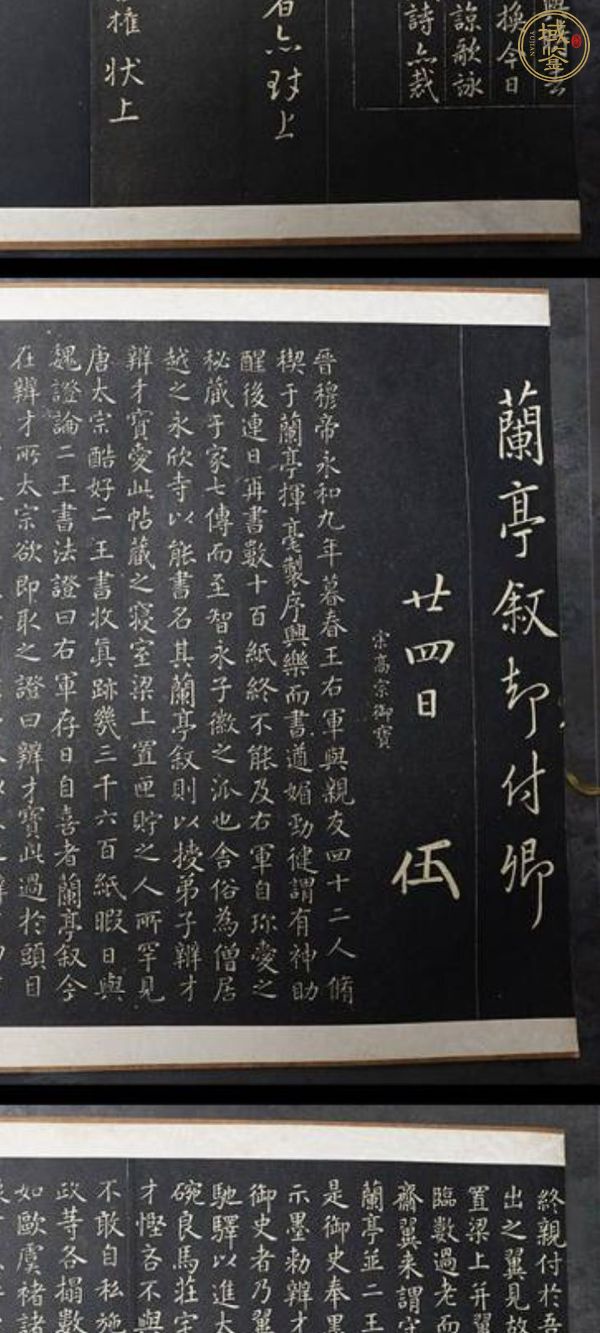 換今日
諒歌咏
詩六裁
六對上
權狀上
蘭亭叙却付卿
廿四日 伍
宗高宗御寶
晉穆帝永和九年暮春王右軍與親友四十二人脩
禊于蘭亭揮毫製序興樂而書遒媚勁健謂有神助
醒後連日再書數十百紙終不能及右軍自珎愛之
秘藏于家七傳而至智永子徽之派也舍俗為僧居
越之永欣寺以能書名其蘭亭叙則以授弟子辯才
辯才寶愛此帖藏之寢室梁上置匣貯之人所罕見
唐太宗酷好二王書收真跡幾三千六百紙暇日與
魏證論二王書法證曰右軍存日自喜者蘭亭叙今
在辯才所太宗欲即取之證曰辯才寶此過於頭目
終親付於吾
出之翼見故
置梁上并翼
臨數過老而
齋翼来謂守
蘭亭並二王
是御史奉墨
示墨勅辯才
御史者乃翼
馳驛以進太
碗良馬莊宅
才慳吝不與
不敢自私施
政等各搨數
如歐虞褚諸